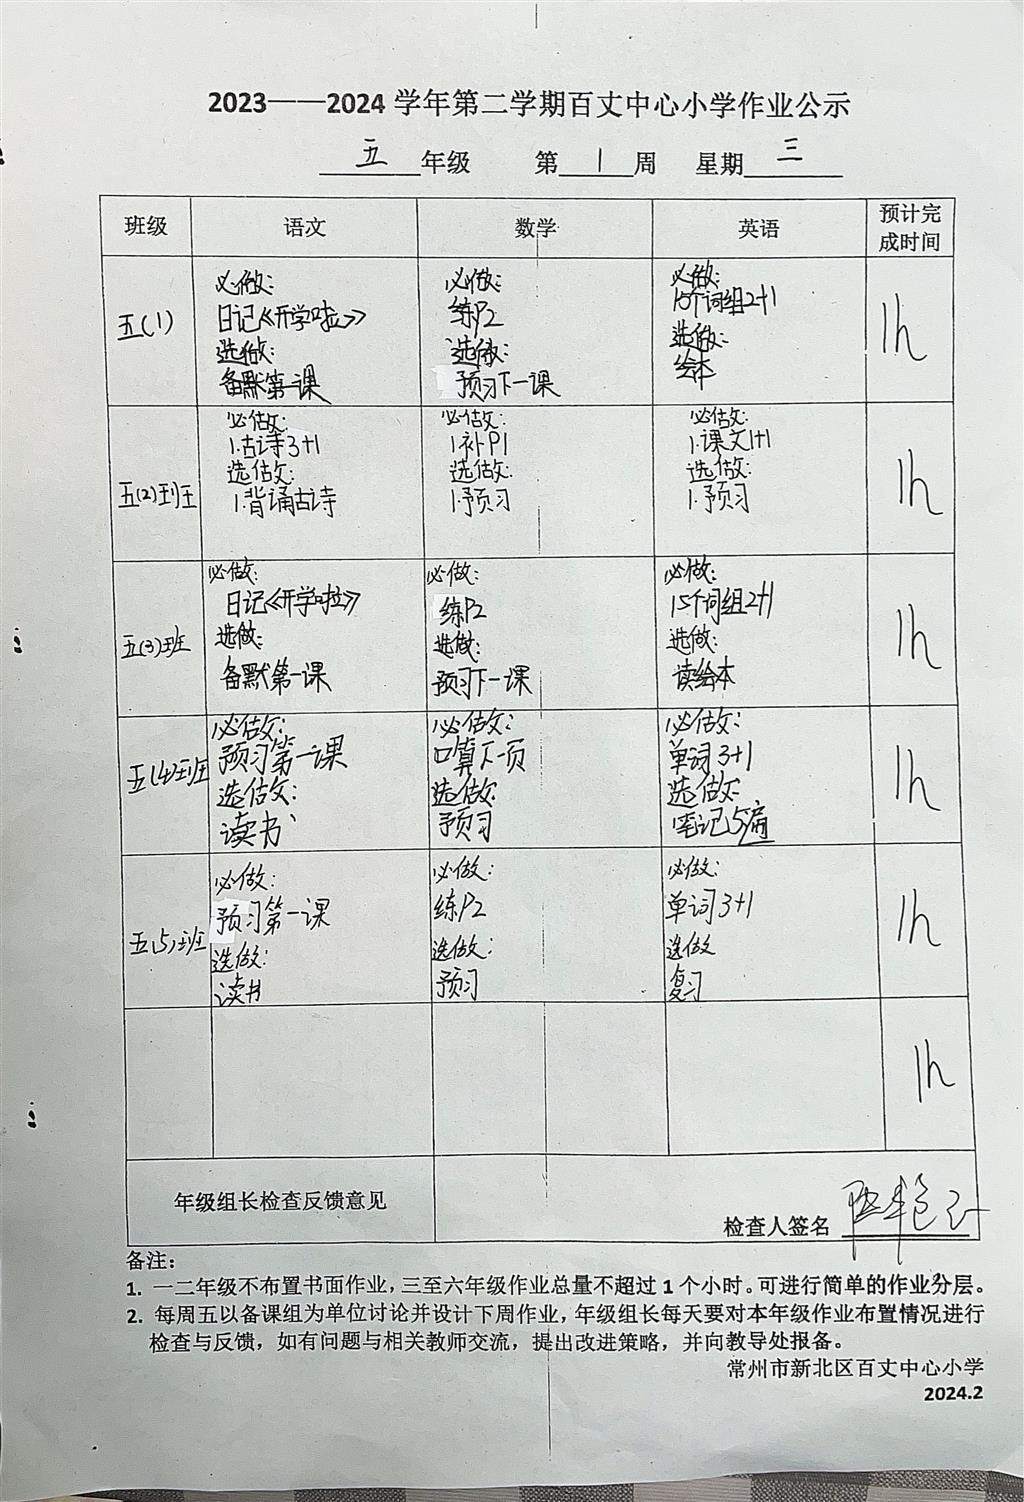 2023——2024 学年第二学期百丈中心小学作业公示
五 年级 第 1 周 星期 三
班级 语文 数学 英语 预计完
成时间
五(1)
必做:
日记《开学啦》
选做:
备默第一课
必做:
练P2
选做:
预习下一课
必做:
15个词组2+1
选做:
绘本
1h
五(2)班
必做:
1.古诗3+1
选做:
1.背诵古诗
必做:
1.补P1
选做:
1.预习
必做:
1.课文1+1
选做:
1.预习
1h
五(3)班
必做:
日记《开学啦》
选做:
备默第一课
必做:
练P2
选做:
预习下一课
必做:
15个词组2+1
选做:
读绘本
1h
五(4)班
必做:
预习第一课
选做:
读书
必做:
口算下一页
选做:
预习
必做:
单词3+1
选做:
笔记5遍
1h
五(5)班
必做:
预习第一课
选做:
读书
必做:
练P2
选做:
预习
必做:
单词3+1
选做
复习
1h
1h
年级组长检查反馈意见
检查人签名
备注:
1. 一二年级不布置书面作业,三至六年级作业总量不超过 1 个小时。可进行简单的作业分层。
2. 每周五以备课组为单位讨论并设计下周作业,年级组长每天要对本年级作业布置情况进行
检查与反馈,如有问题与相关教师交流,提出改进策略,并向教导处报备。
常州市新北区百丈中心小学
2024.2